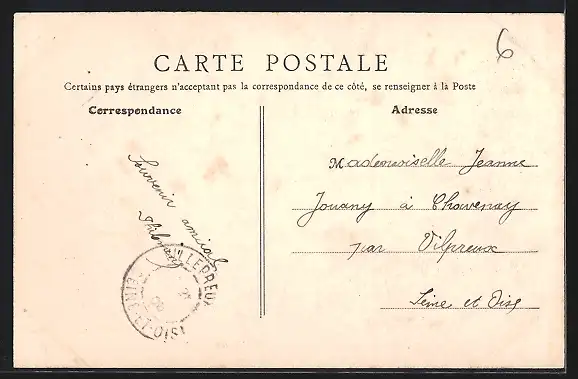 6
CARTE POSTALE
Certains pays étrangers n'acceptant pas la correspondance de ce côté, se renseigner à la Poste
Correspondance
Adresse
Souvenir amical
Mademoiselle Jeanne
Jouany à Chavenay
par Vilpreux
Seine et Oise
VILLEPREUX
SEINE-ET-OISE